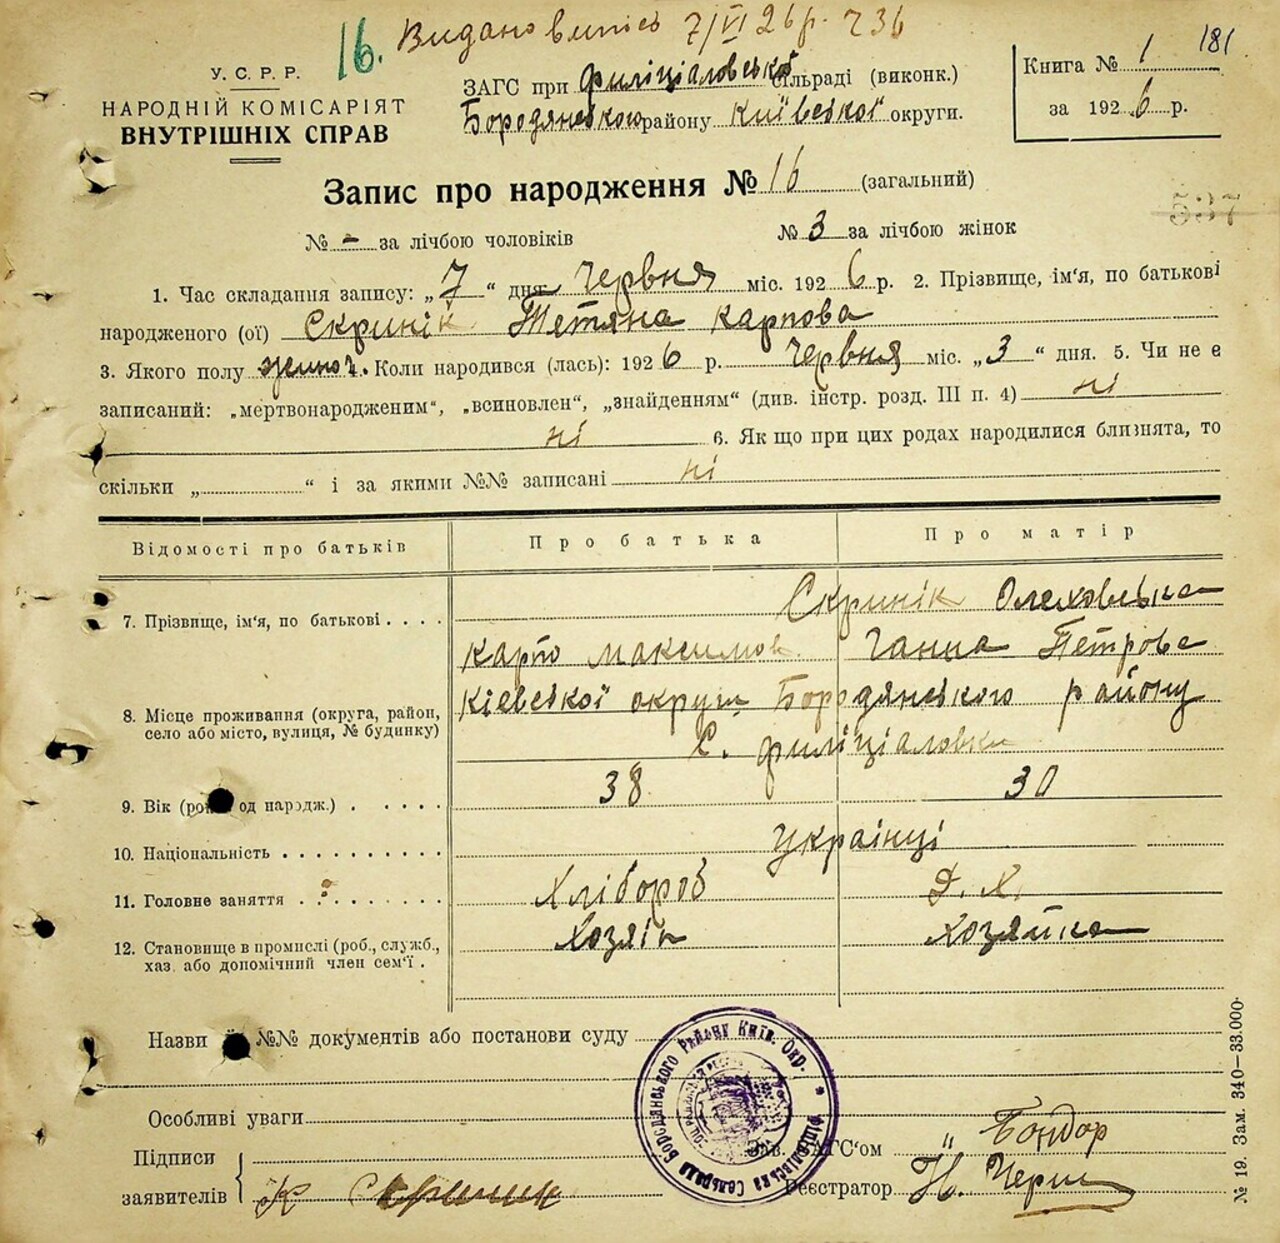 16. Видано випись 7/VI 26 р. ч 36
181
У. С. Р. Р.
НАРОДНІЙ КОМІСАРІЯТ
ВНУТРІШНІХ СПРАВ
ЗАГС при Филіціаловській сільраді (виконк.)
Бородянського району Київської округи.
Книга № 1
за 1926 р.
Запис про народження № 16 (загальний)
537
№ - за лічбою чоловіків № 3 за лічбою жінок
1. Час складання запису: „7“ дня Червня міс. 1926 р. 2. Прізвище, ім'я, по батькові
народженого (ої) Скринік Тетяна Карпова
3. Якого полу жіноч. 4. Коли народився (лась): 1926 р. Червня міс. „3“ дня. 5. Чи не є
записаний: „мертвонародженим“, „всиновлен“, „знайденням“ (див. інстр. розд. III п. 4) ні
ні 6. Як що при цих родах народилися близнята, то
скільки „ “ і за якими №№ записані ні
Відомості про батьків Про батька Про матір
Скринік Олеховська
7. Прізвище, ім'я, по батькові . . . .
Карпо Максимов. Ганна Петрова
Кіевскої округи Бородянського району
8. Місце проживання (округа, район,
село або місто, вулиця, № будинку)
С. Филіціаловки
9. Вік (років од народж.) . . . . . 38 30
10. Національність . . . . . . . . . . Українці
11. Головне заняття . . . . . . . . Хлібороб Д. Х.
12. Становище в промислі (роб., служб.,
хаз. або допомічний член сем'ї . Хозяїн Хозяйка
Назви й №№ документів або постанови суду
Особливі уваги
Підписи
заявителів К Скриник
Зав. ЗАГС'ом „ Бондор
Реєстратор Н. Черн
Бородянського Району Київ. Окр. *
Сельрада
№ 19. Зам. 340—33.000·